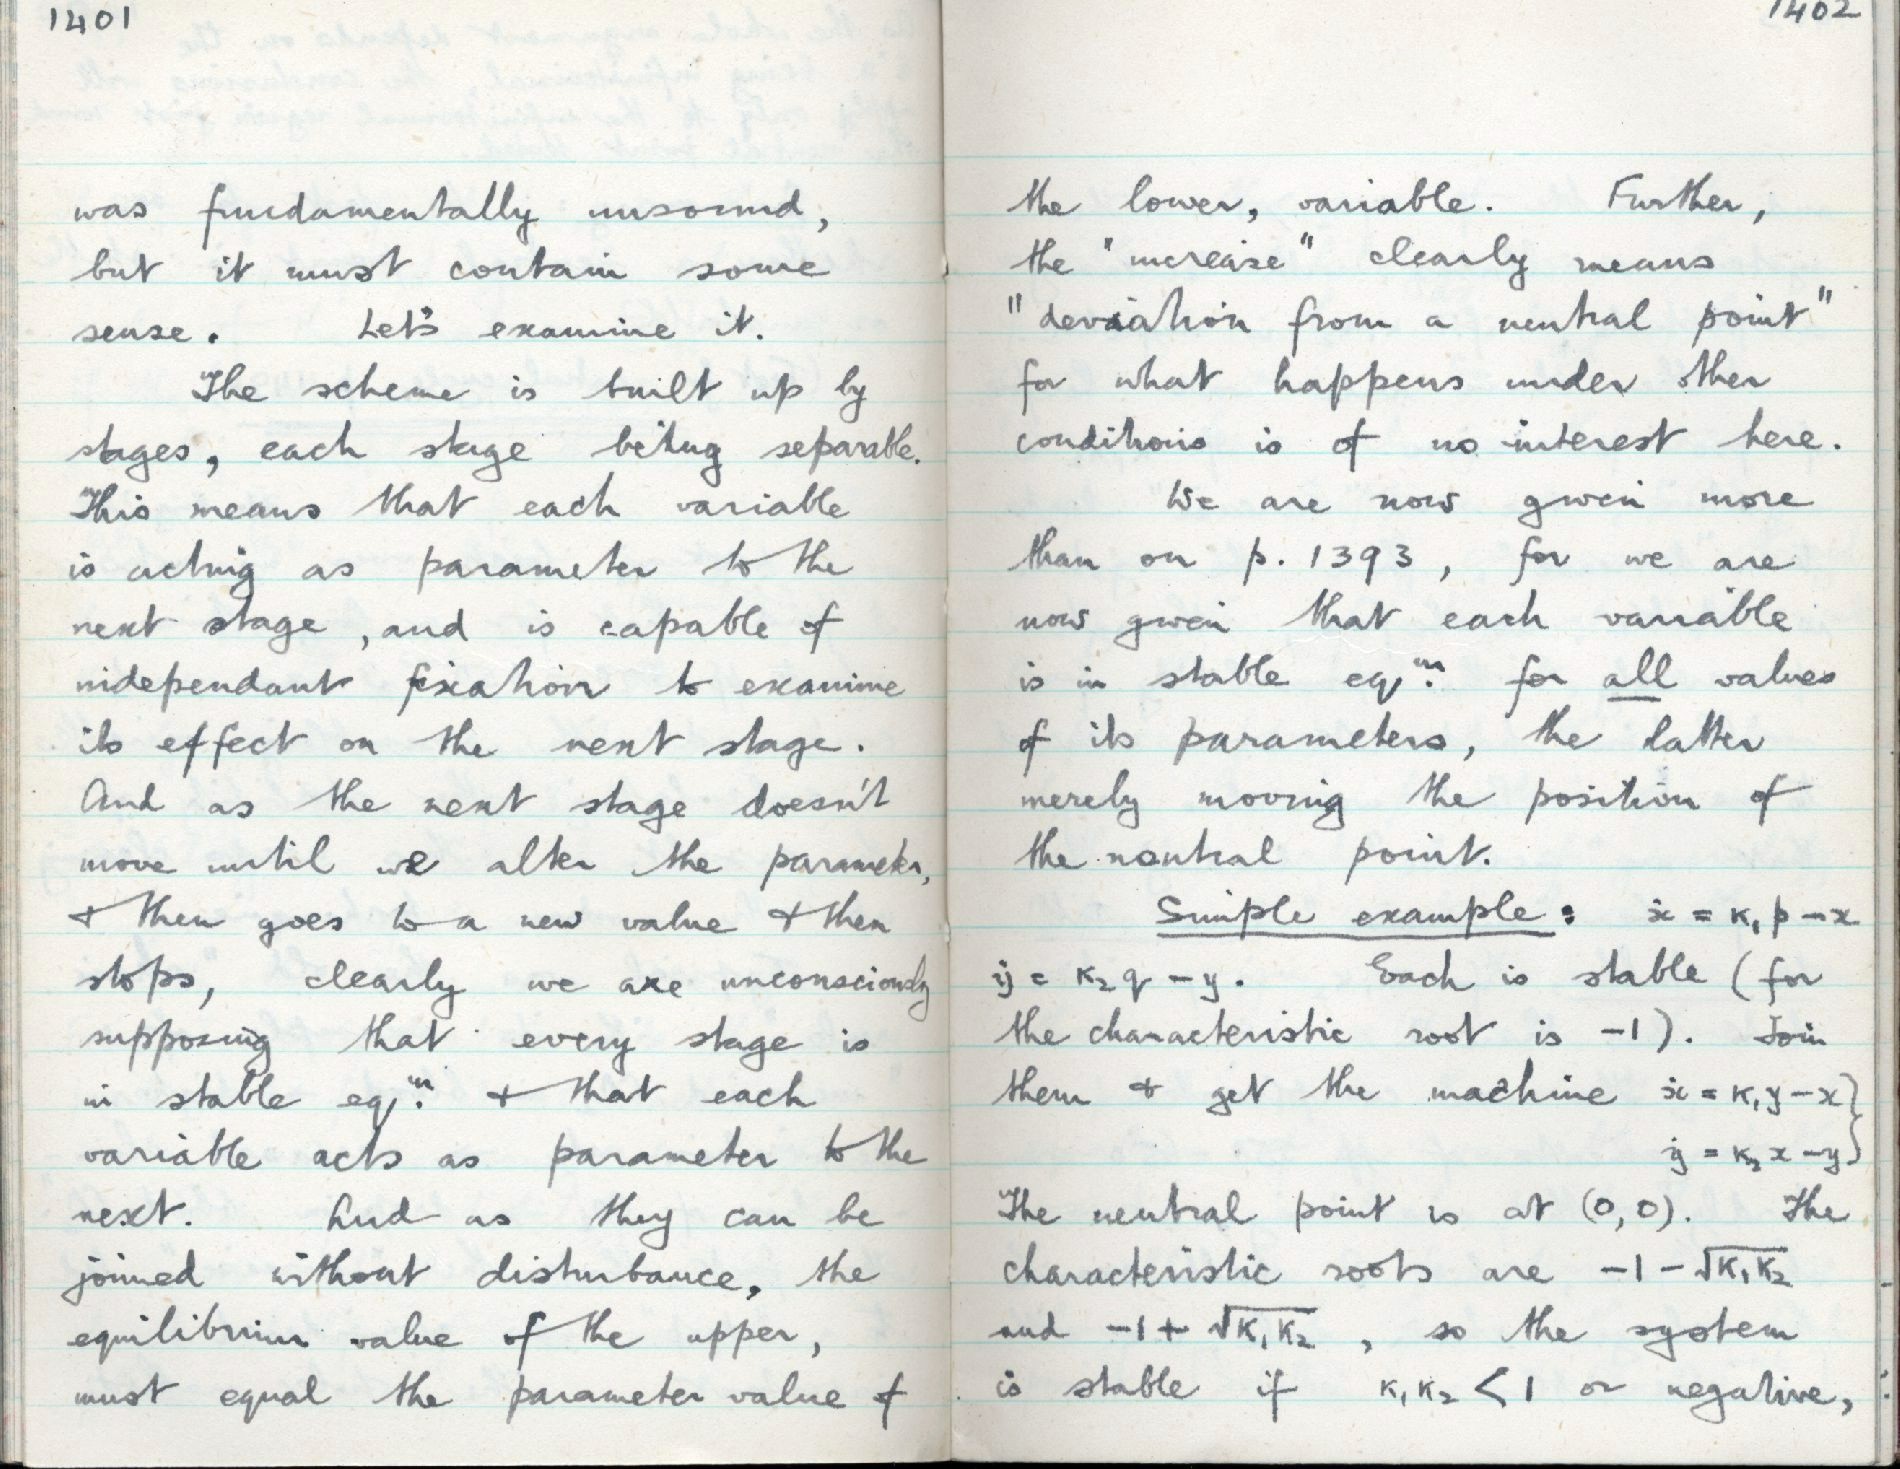 1401
was fundamentally unsound,
but it must contain some
sense. Let's examine it.
The scheme is built up by
stages, each stage being separable.
This means that each variable
is acting as parameter to the
next stage, and is capable of
independant fixation to examine
its effect on the next stage.
And as the next stage doesn't
move until we alter the parameter,
& then goes to a new value & then
stops, clearly we are unconsciously
supposing that every stage is
in stable eqm. & that each
variable acts as parameter to the
next. And as they can be
joined without disturbance, the
equilibrium value of the upper,
must equal the parameter value of
1402
the lower, variable. Further,
the "increase" clearly means
"deviation from a neutral point"
for what happens under other
conditions is of no interest here.
We are now given more
than on p. 1393, for we are
now given that each variable
is in stable eqm. for all values
of its parameters, the latter
merely moving the position of
the neutral point.
Simple example: ẋ = K₁p − x
ẏ = K₂q − y. Each is stable (for
the characteristic root is −1). Join
them & get the machine ẋ = K₁y − x}
ẏ = K₂x − y}
The neutral point is at (0,0). The
characteristic roots are −1 − √K₁K₂
and −1 + √K₁K₂, so the system
is stable if K₁K₂ < 1 or negative,